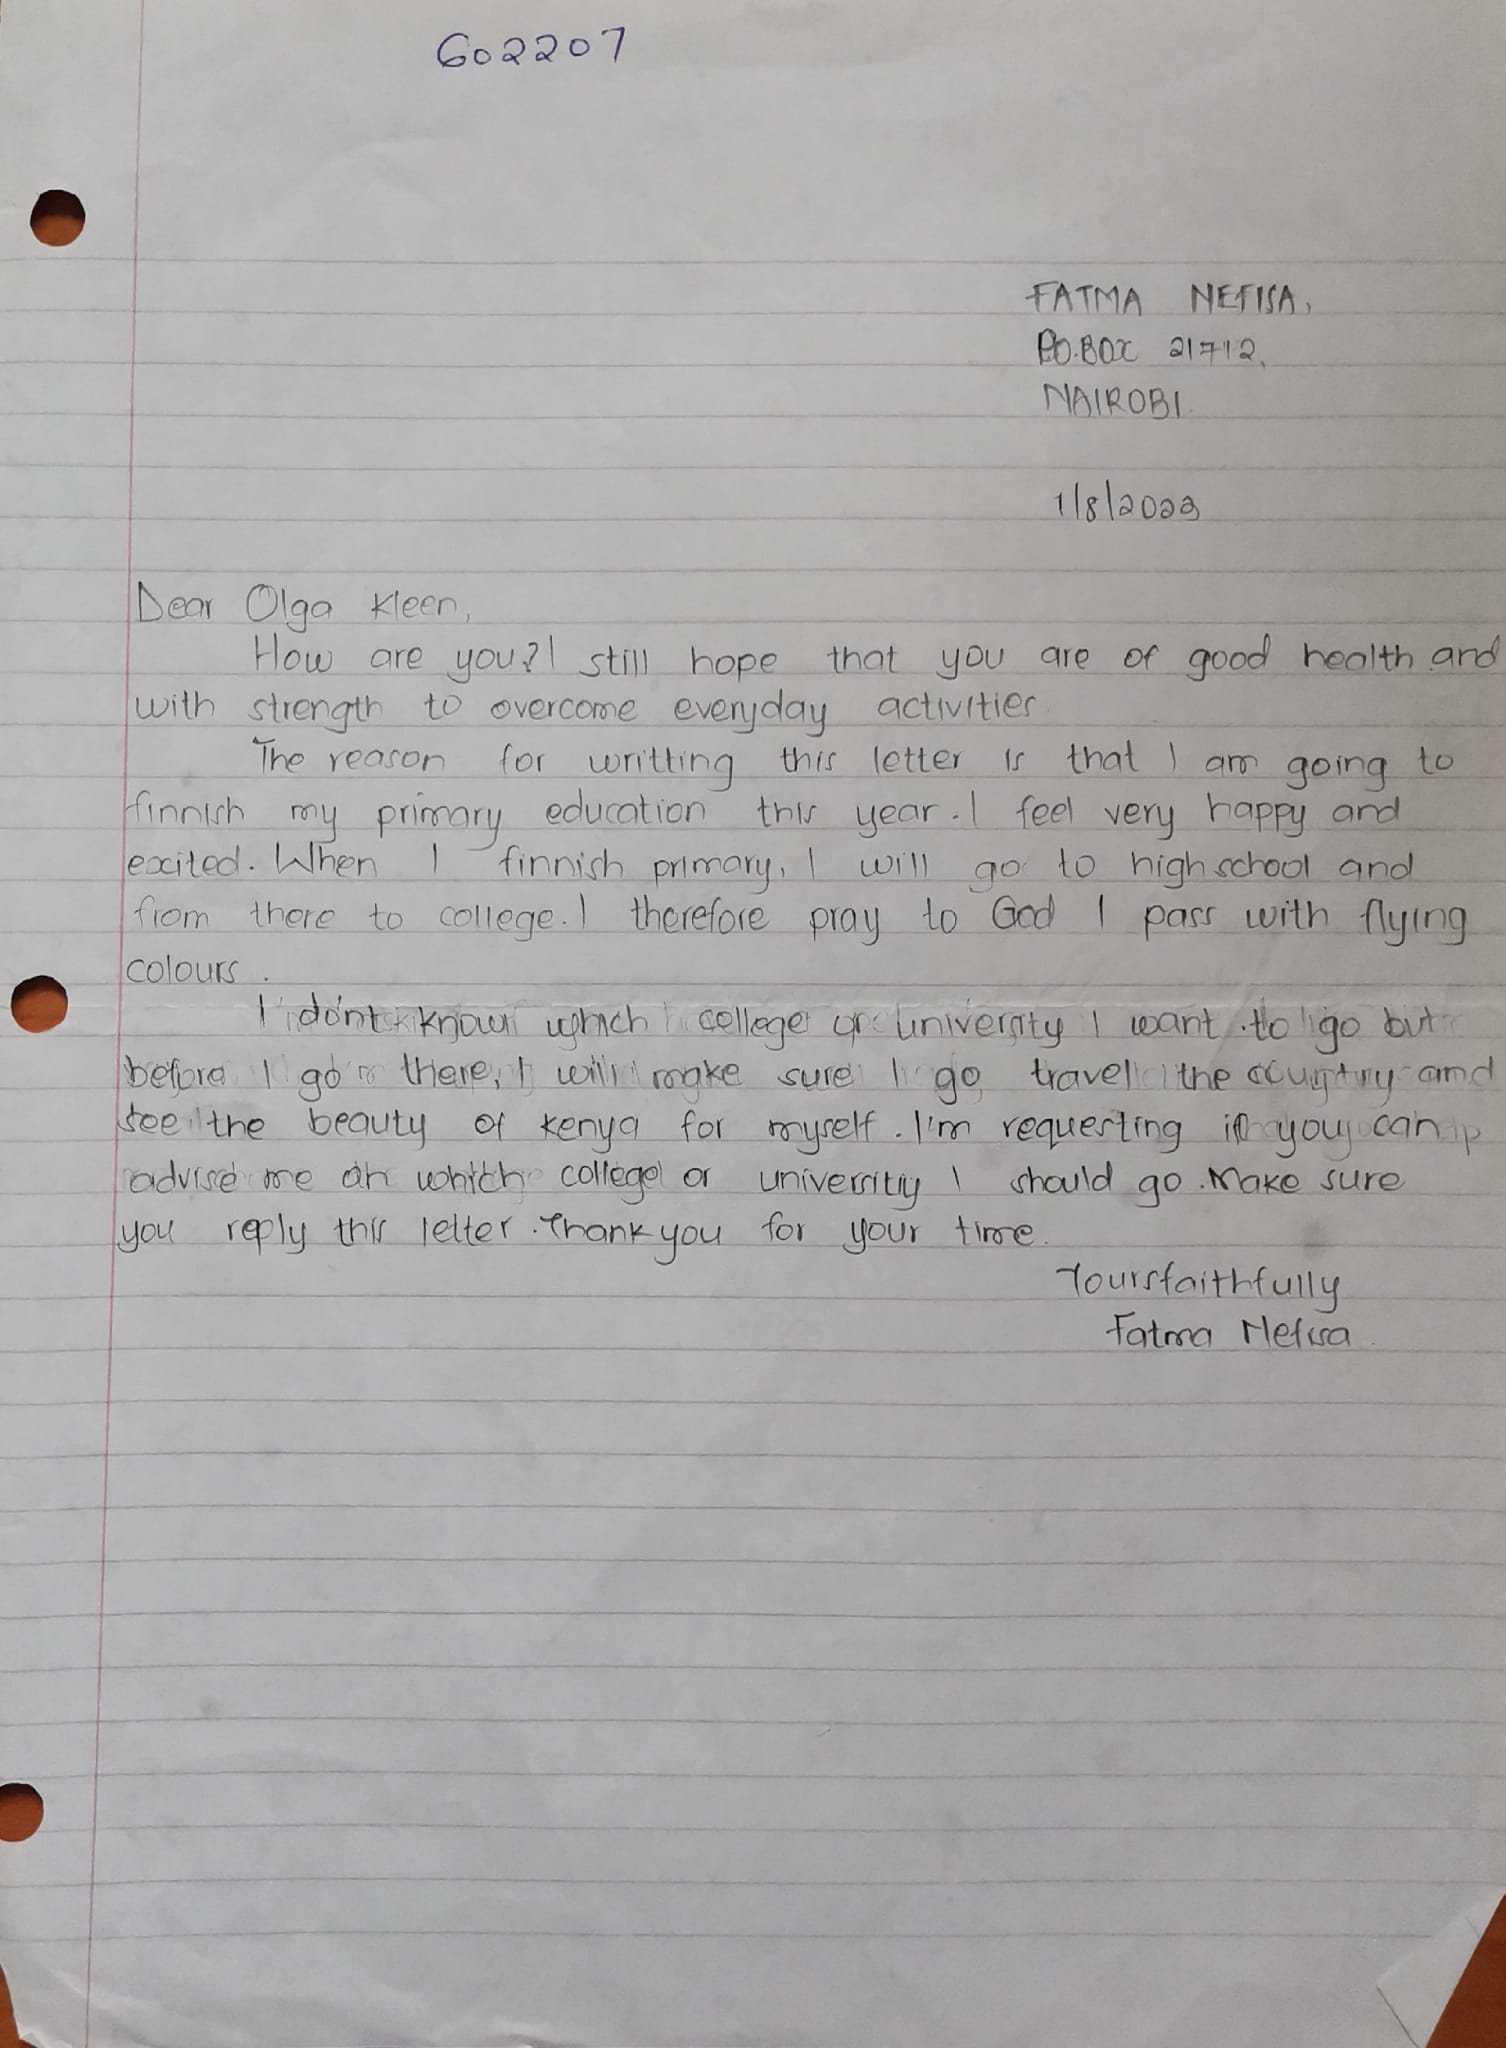 602207
FATMA NEFISA,
P.O.BOX 21712,
NAIROBI.
1/8/2023
Dear Olga Kleen,
How are you? I still hope that you are of good health and
with strength to overcome everyday activities
The reason for writting this letter is that I am going to
finnish my primary education this year. I feel very happy and
excited. When I finnish primary, I will go to high school and
from there to college. I therefore pray to God I pass with flying
colours.
I don't know which college or university I want to go but
before I go there, I will make sure I go travel the country and
see the beauty of kenya for myself. I'm requesting if you can
advise me on which college or university I should go. Make sure
you reply this letter. Thank you for your time.
Yoursfaithfully
Fatma Nefisa.